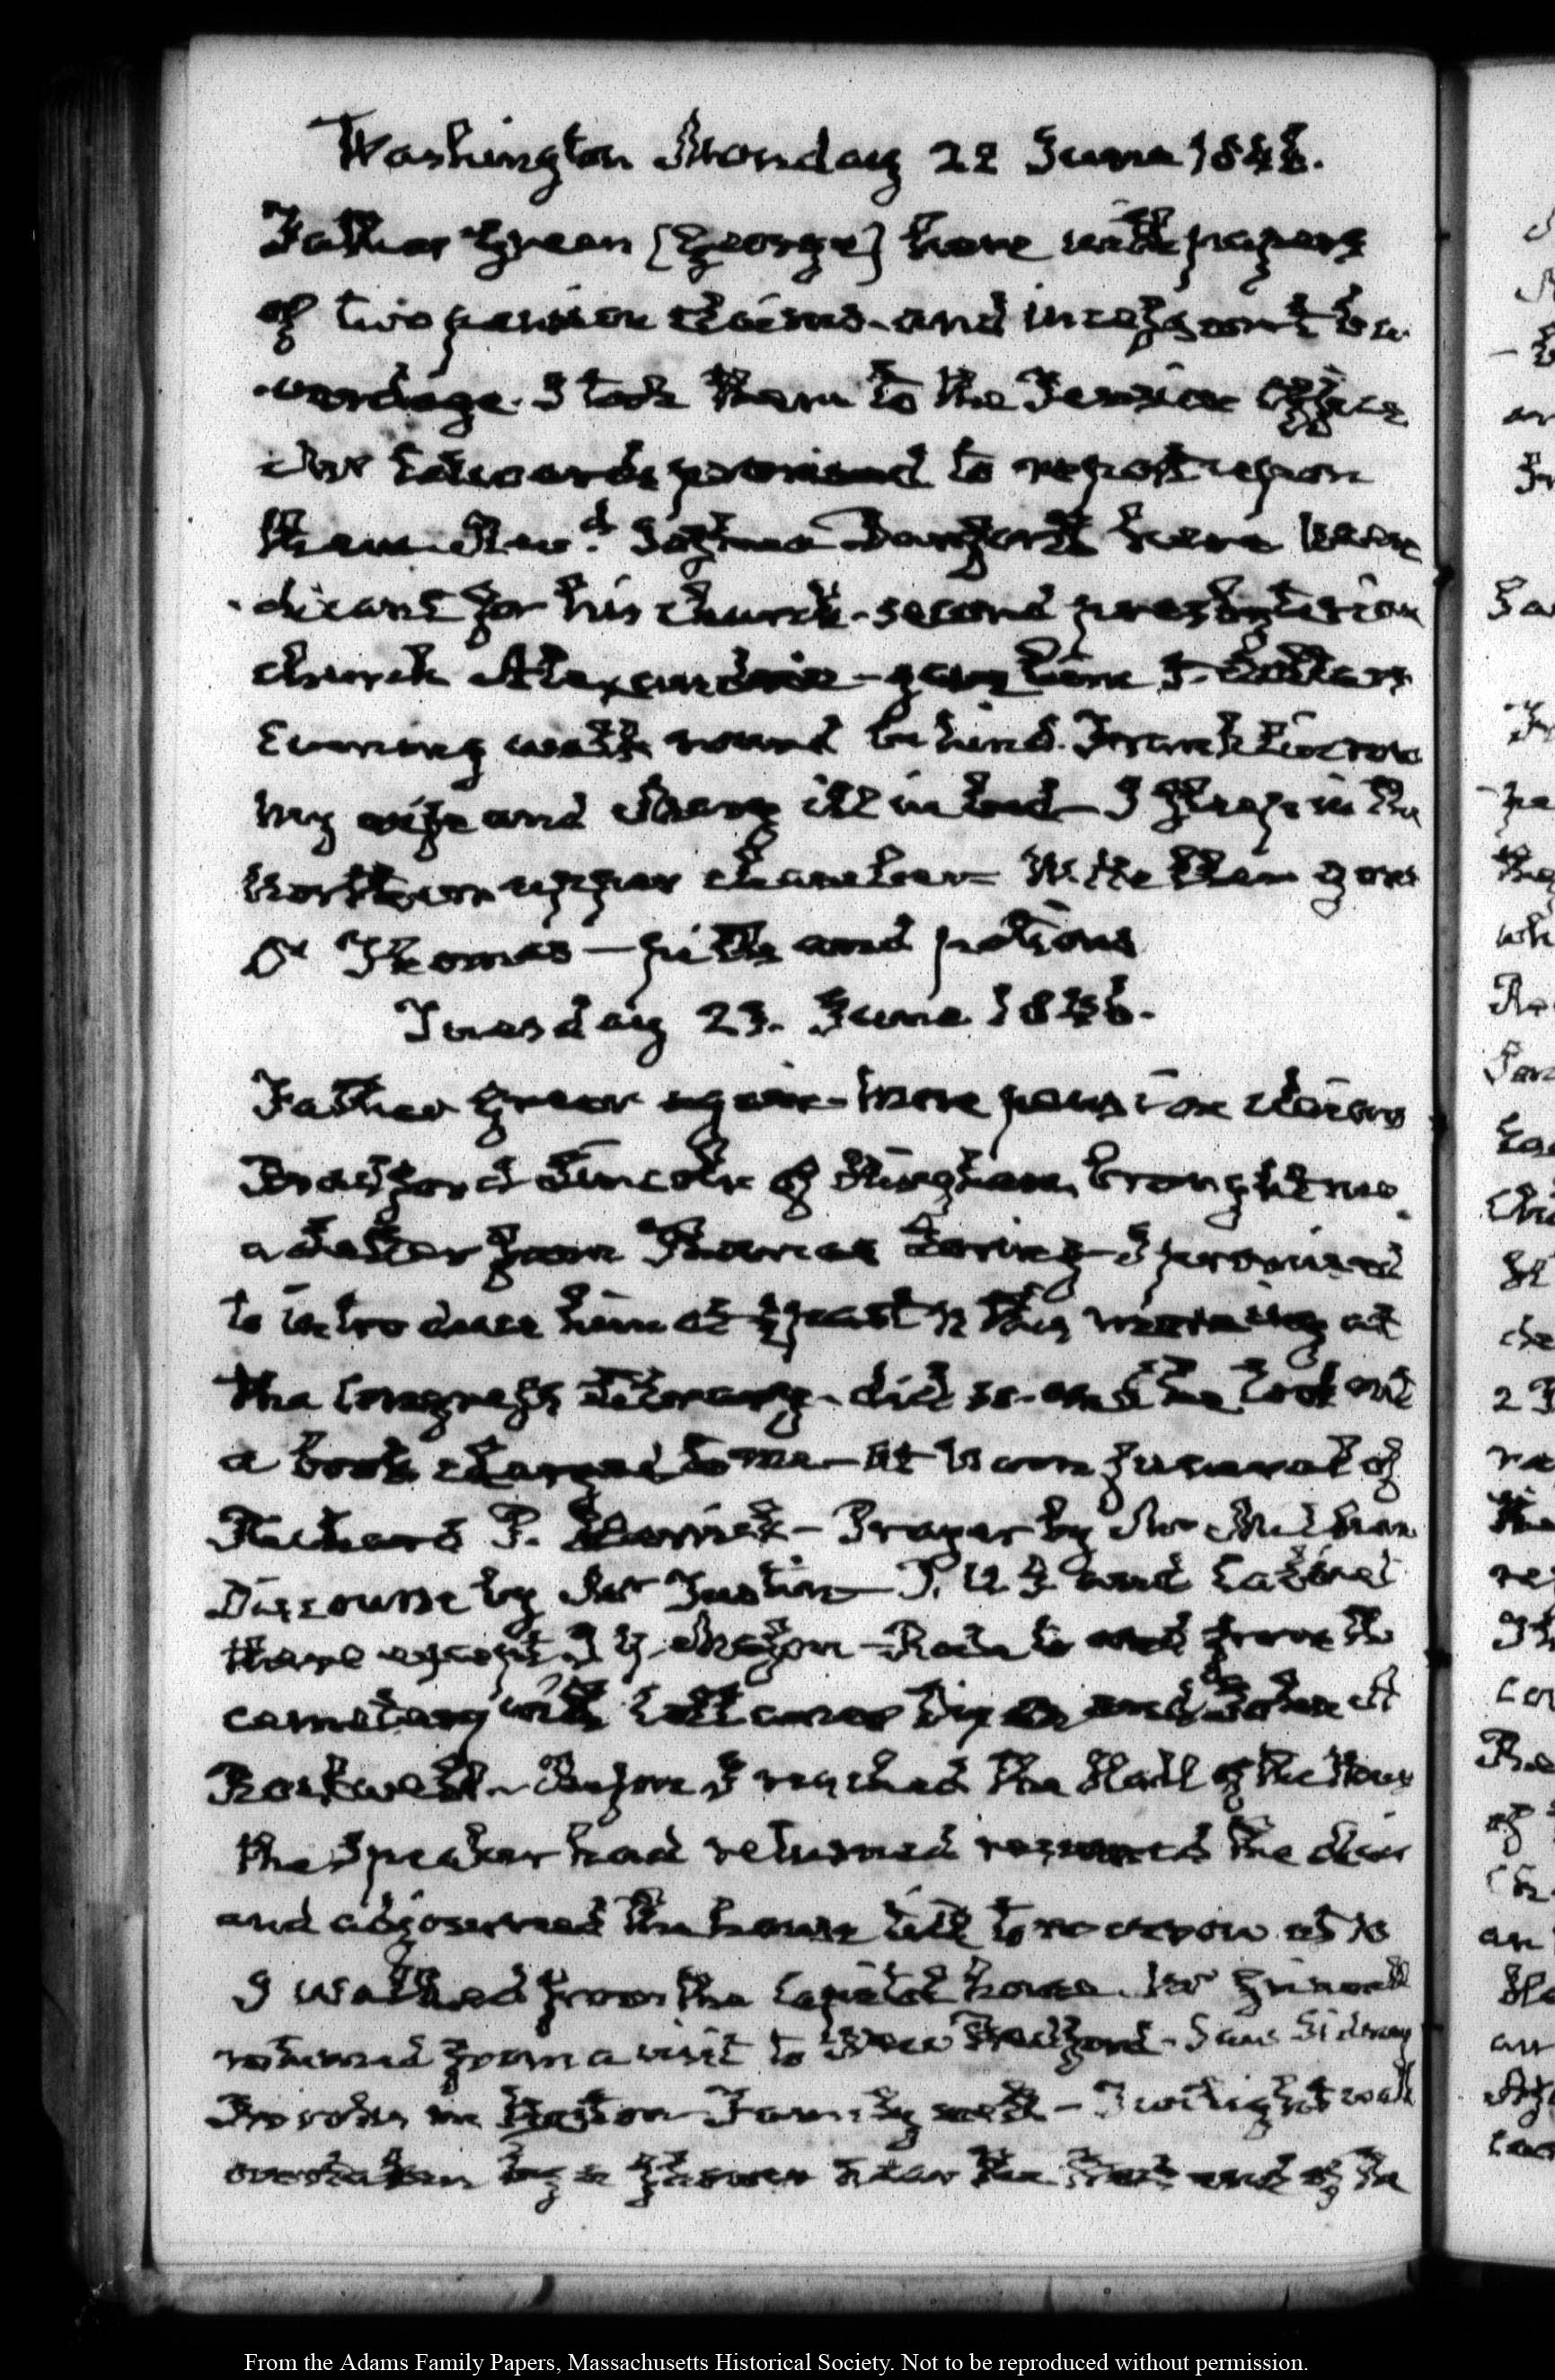 Washington Monday 22 June 1846.
Father Green (George) here with papers
of two pension claims and
I took them to the Pension Office
Mr Edwards promised to report upon
them. Revd. Danforth here
for his church. second presbyterian
church Alexandria - gave him 5 dollars
Evening walk round behind Franklin row
My wife and Mary ill in bed - I sleep in the
Northern upper chamber -
Dr Thomas - pills and potions
Tuesday 23. June 1846.
Father Green again - more pension claims
Bradford Lincoln of Hingham, brought me
a letter from Thomas Loring - I promised
to introduce him at past this morning at
the Congress Library - did so - and he took out
a book charged to me - At funeral of
Richard P. Herrick - Prayer by Mr Milburn
Discourse by Mr Tustin - P. U.S and Cabinet
there except J Y. Mason - Rode to and from the
cemetary with Columbus and John A
Rockwell - Before I reached the Hall of the House
the Speaker had returned resumed the chair
and adjourned the house till tomorrow at 10
I walked from the Capitol home. Mr Grinnell
returned from a visit to New Bedford - Saw Sidney
Brooks in Boston Family well - Twilight walk
overtaken by a shower near the of the